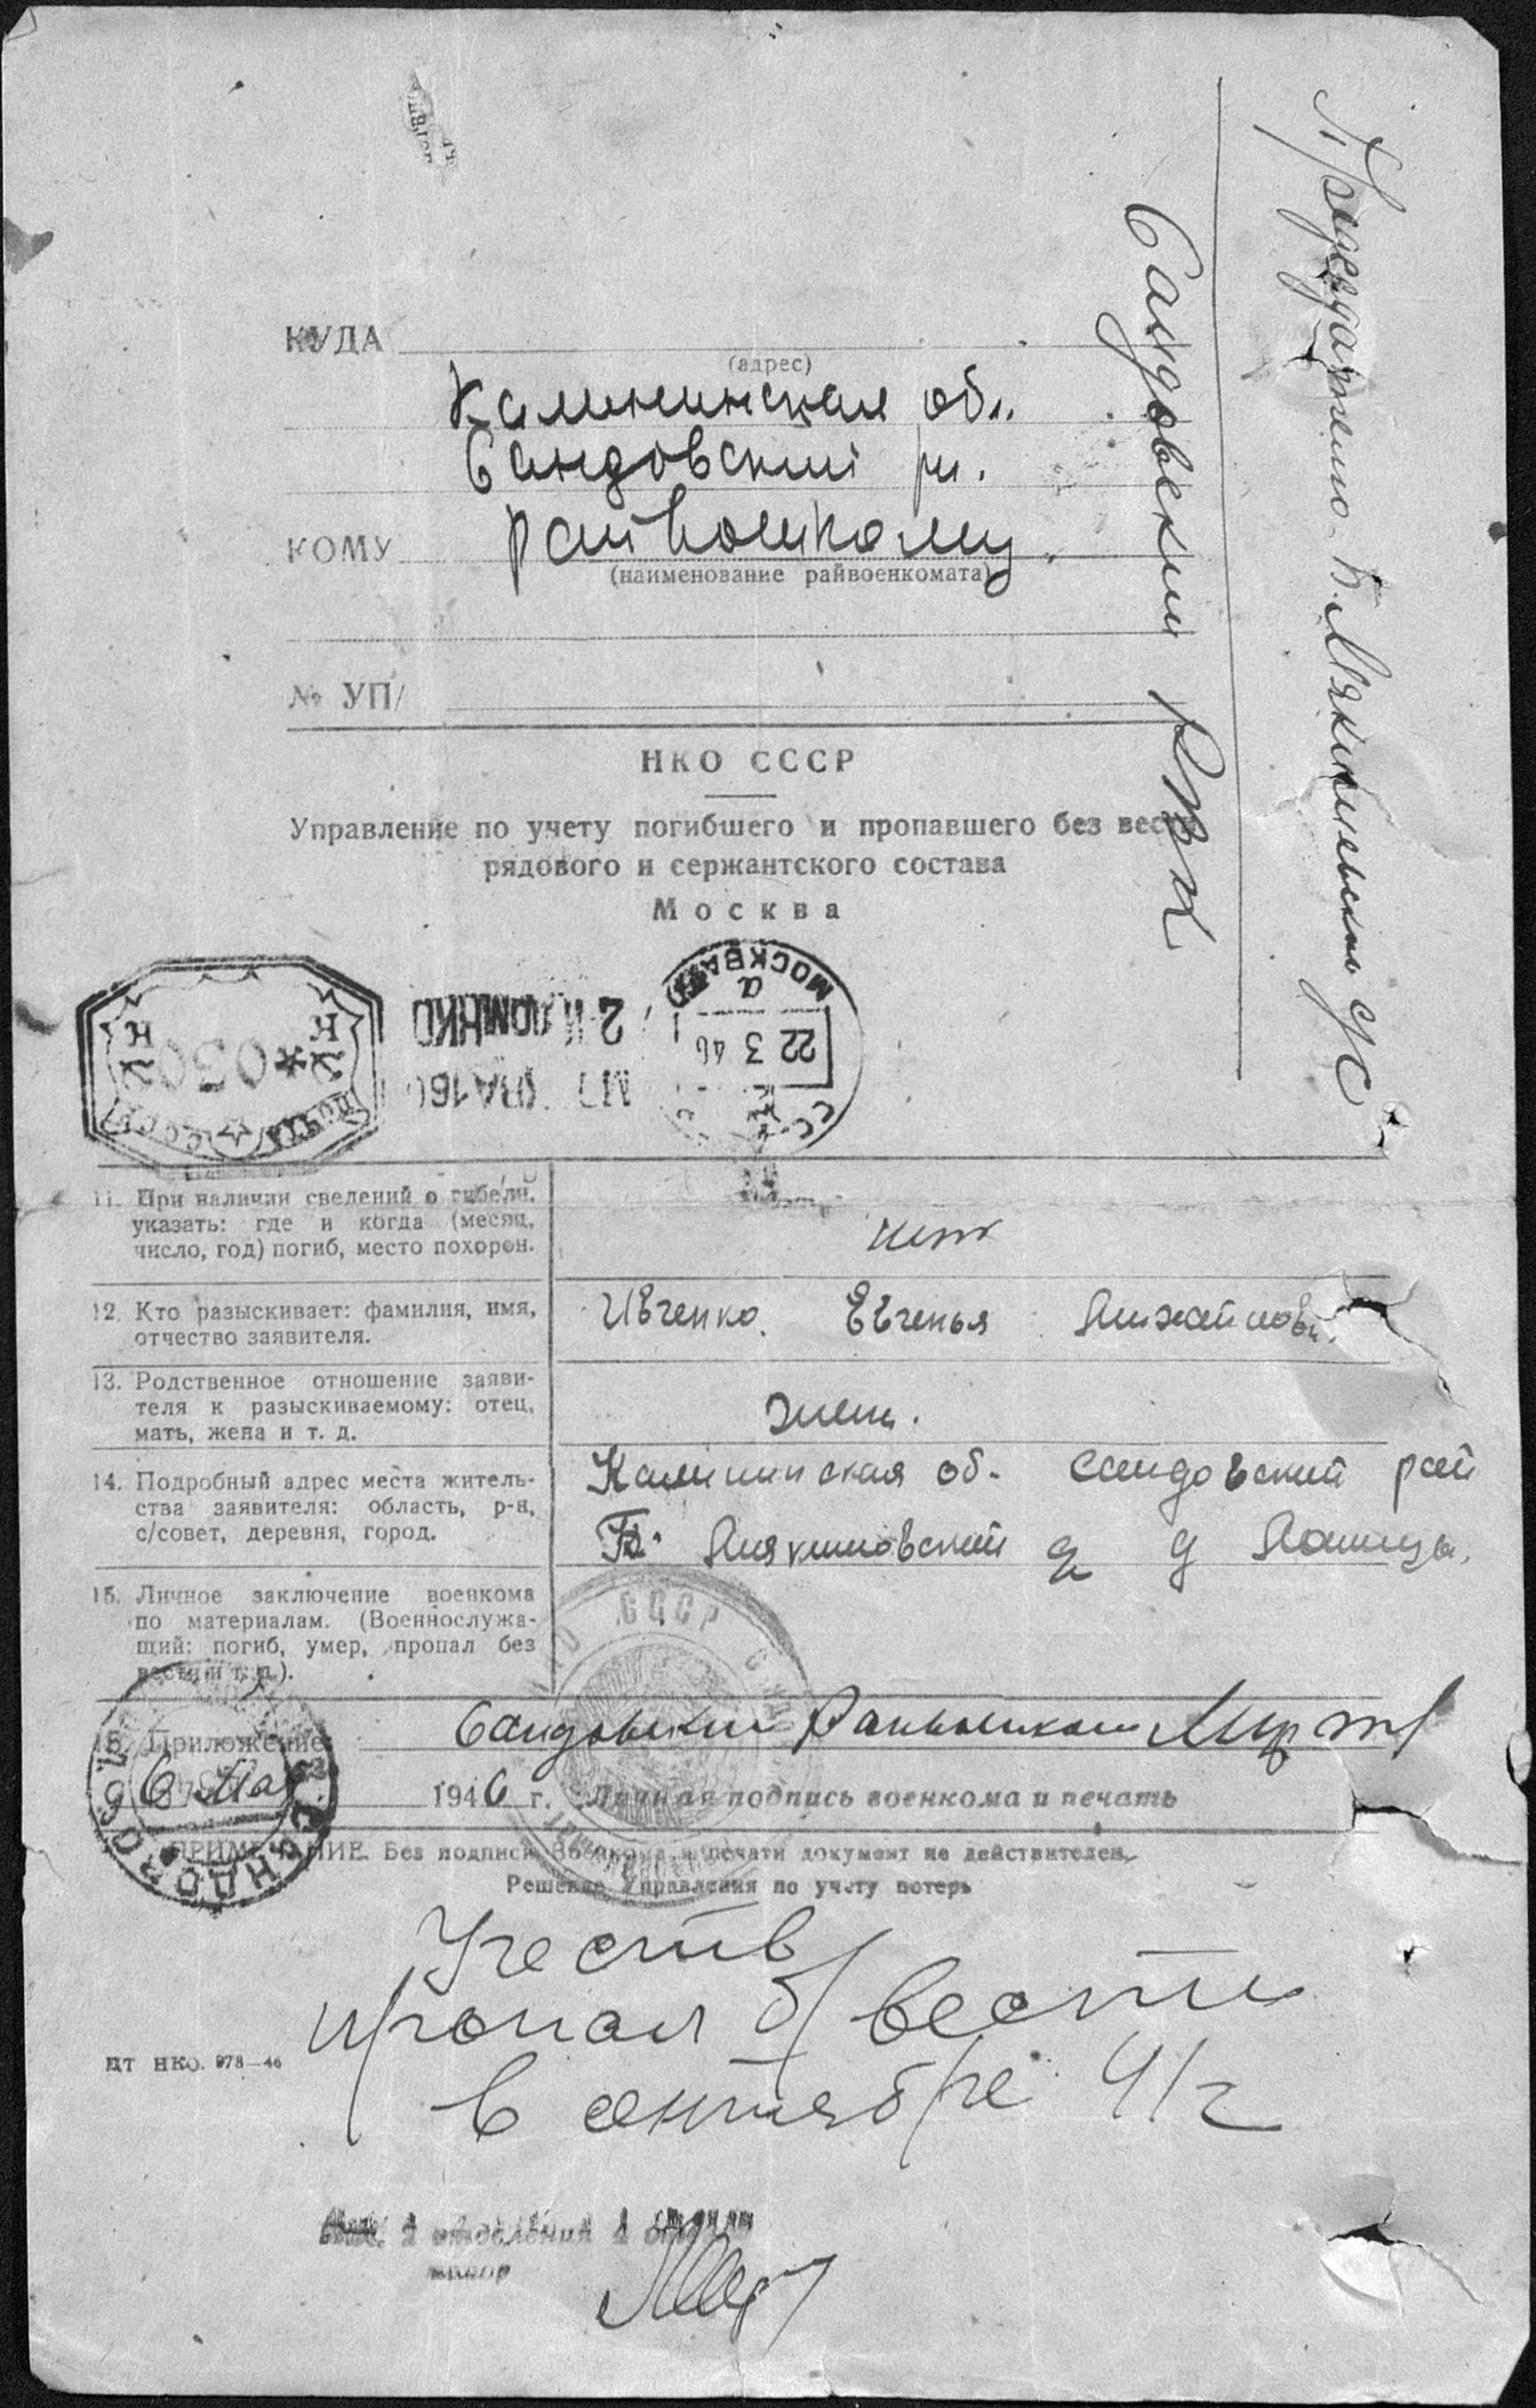 КУДА
(адрес)
Калининская обл.
Сандовский рн.
КОМУ райвоенкому.
(наименование райвоенкомата)
№ УП/
НКО СССР
Управление по учету погибшего и пропавшего без вести
рядового и сержантского состава
Москва
Сандовский РВК
МОСКВА
а
22 3 46
ПОЧТА СССР
030
11. При наличии сведений о гибели,
указать: где и когда (месяц,
число, год) погиб, место похорон.
нет
12. Кто разыскивает: фамилия, имя,
отчество заявителя.
Ивченко. Евгенья
13. Родственное отношение заяви-
теля к разыскиваемому: отец,
мать, жена и т. д.
жена.
14. Подробный адрес места житель-
ства заявителя: область, р-н,
с/совет, деревня, город.
Калининская об. Сандовский рай
15. Личное заключение военкома
по материалам. (Военнослужа-
щий: погиб, умер, пропал без
вести и т.д.).
СССР
16. Приложение: Сандовский Райвоенком
6 мая 1946 г. Личная подпись военкома и печать
ПРИМЕЧАНИЕ. Без подписи военкома и печати документ не действителен.
Решение Управления по учету потерь
Учесть
пропал б/вести
в сентябре 41 г
ЦТ НКО. 978—46
отделения 1
майор